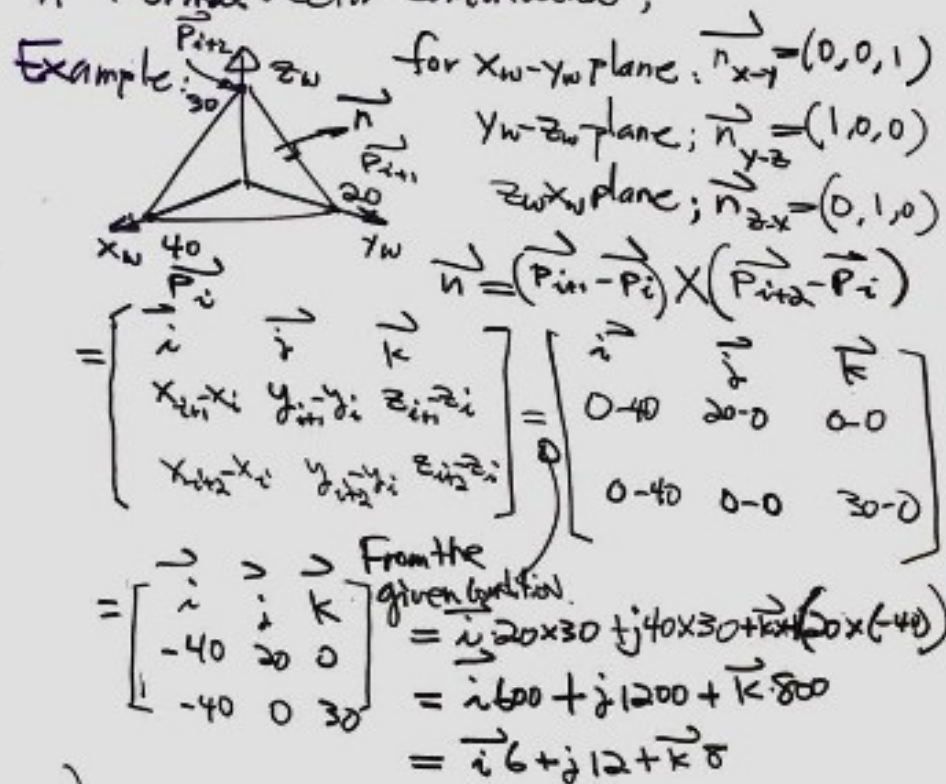 Example:
P_{i+2}
z_w
30
n
P_{i+1}
20
x_w 40
y_w
P_i
for x_w-y_w plane: n_{x-y}=(0,0,1)
y_w-z_w plane; n_{y-z}=(1,0,0)
z_w x_w plane; n_{z-x}=(0,1,0)
n=(P_{i+1}-P_i)×(P_{i+2}-P_i)
= [ i j k
x_{i+1}-x_i y_{i+1}-y_i z_{i+1}-z_i
x_{i+2}-x_i y_{i+2}-y_i z_{i+2}-z_i ]
= [ i j k
0-40 20-0 0-0
0-40 0-0 30-0 ]
From the
given condition.
= [ i j k
-40 20 0
-40 0 30 ]
= i 20×30 + j 40×30 + k (20×(-40))
= i 600 + j 1200 + k 800
= i 6 + j 12 + k 8